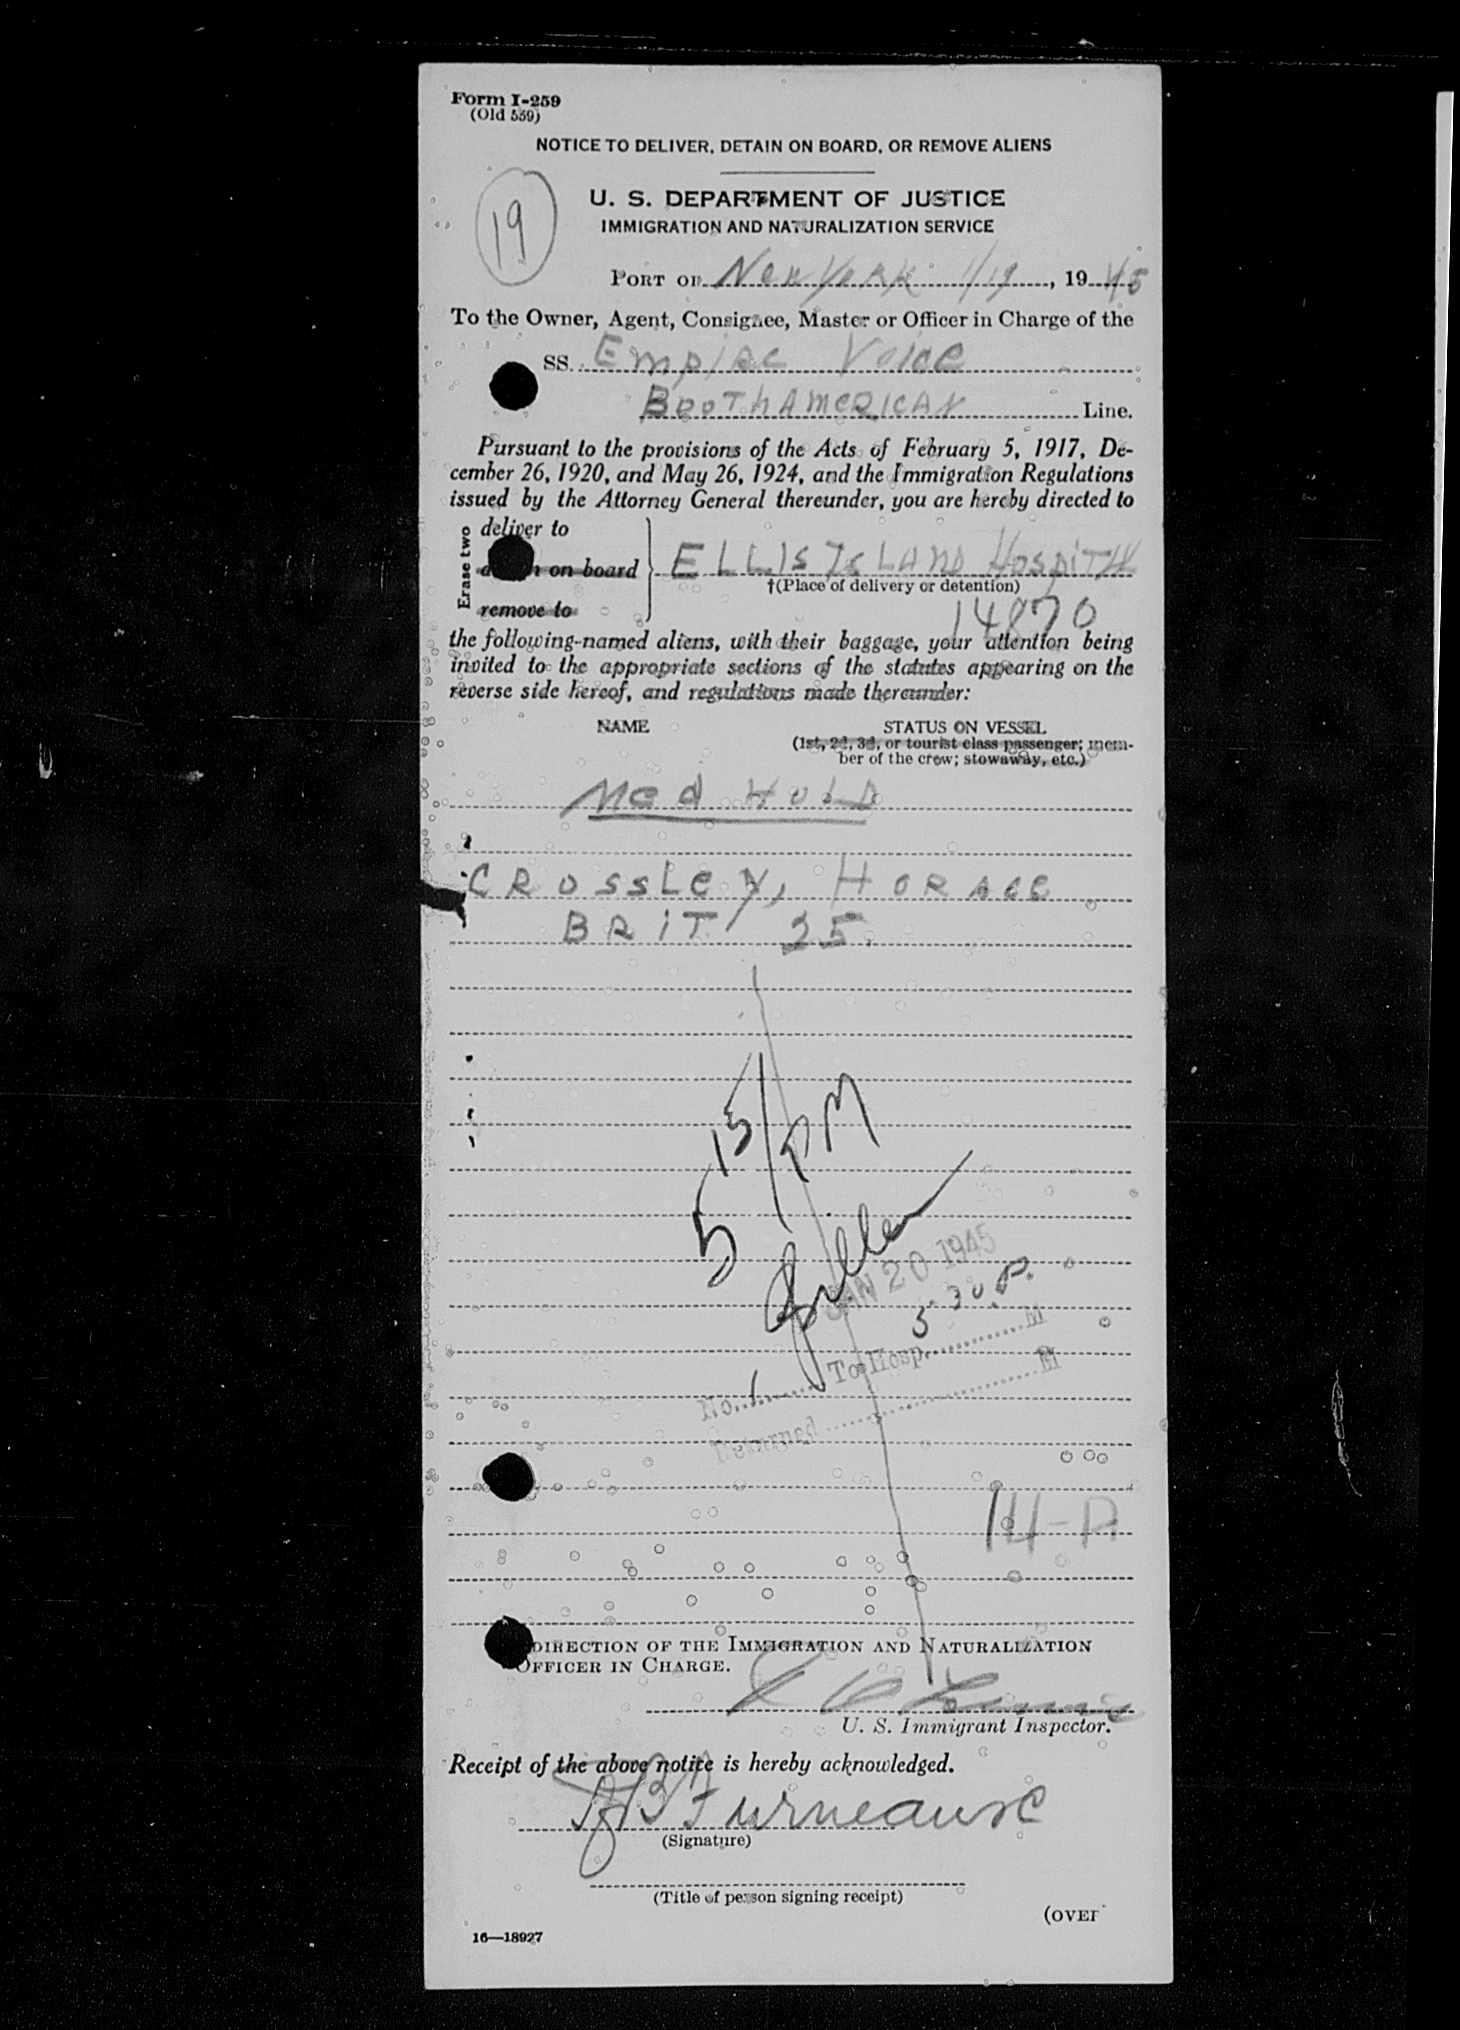 Form I-259
(Old 559)
NOTICE TO DELIVER, DETAIN ON BOARD, OR REMOVE ALIENS
19
U. S. DEPARTMENT OF JUSTICE
IMMIGRATION AND NATURALIZATION SERVICE
PORT OF New York 1/19, 1945
To the Owner, Agent, Consignee, Master or Officer in Charge of the
SS. Empire Voice
Booth American Line.
Pursuant to the provisions of the Acts of February 5, 1917, De-
cember 26, 1920, and May 26, 1924, and the Immigration Regulations
issued by the Attorney General thereunder, you are hereby directed to
Erase two
deliver to
on board
remove to
ELLIS ISLAND HOSPITAL
†(Place of delivery or detention)
14870
the following-named aliens, with their baggage, your attention being
invited to the appropriate sections of the statutes appearing on the
reverse side hereof, and regulations made thereunder:
NAME STATUS ON VESSEL
(1st, 2d, 3d, or tourist class passenger; mem-
ber of the crew; stowaway, etc.)
Med Hold
CROSSLEY, HORACE
BRIT 25
5 15/PM
JAN 20 1945
5 30 P.
No. 1 To Hosp. M
Returned M
14-A
DIRECTION OF THE IMMIGRATION AND NATURALIZATION
OFFICER IN CHARGE.
U. S. Immigrant Inspector.
Receipt of the above notice is hereby acknowledged.
Furneaux
(Signature)
(Title of person signing receipt)
(OVER
16—18927